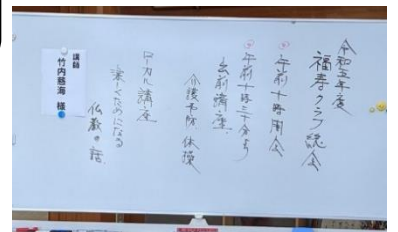 令和五年度
福寿クラブ総会
午前十時開会
午前十時三十分より
出前講座
介護予防体操
ローカル講座
楽しくためになる
仏教の話
講師
竹内慈海 様